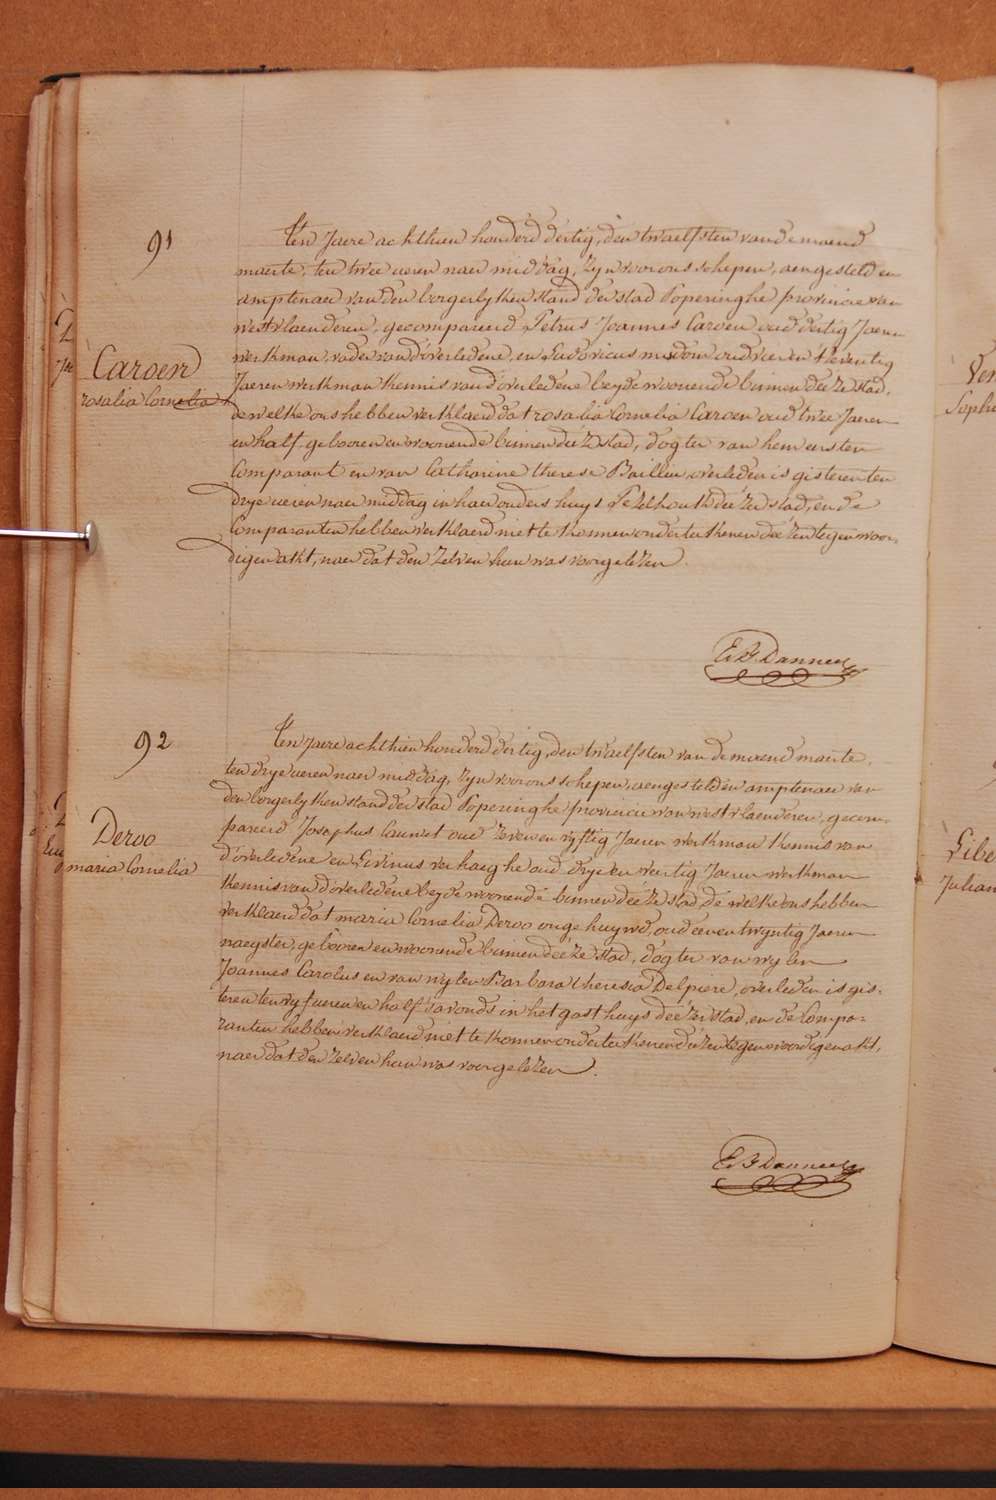 91
Caroen
rosalia Cornelia
Ten Jaere achthien honderd dertig, den twaelfsten van de maend
maerte, ten twee ueren naer middag, zyn voor ons schepen, aengesteld en
amptenaer van den borgerlyken stand der stad Poperinghe provincie van
westvlaenderen, gecompareerd Petrus Joannes Caroen oud dertig Jaeren
werkman, vader van d'overledene, en Ludovicus oud vier en t'seventig
Jaeren werkman kennis van d'overledene beyde woonende binnen deéze stad,
dewelke ons hebben verklaerd dat rosalia Cornelia Caroen oud twee Jaeren
en half gebooren en woonende binnen deéze stad, dogter van hem eersten
Comparant en van Catharine therese Baillieu, overleden is gisteren ten
drye ueren naer middag in haer ouders huys deézer stad, en de
Comparanten hebben verklaerd niet te konnen onderteekenen deézen tegenwoor-
digen akt, naer dat den zelven hun was voorgelezen.
92
Deroo
maria Cornelia
Ten Jaere achthien honderd dertig, den twaelfsten van de maend maerte,
ten drye ueren naer middag, zyn voor ons schepen, aengesteld en amptenaer van
den borgerlyken stand der stad Poperinghe provincie van westvlaenderen, gecom-
pareerd Josephus Cauwet oud zeven en vyftig Jaeren werkman kennis van
d'overledene en Livinus verhaeghe oud drye en veertig Jaeren werkman
kennis van d'overledene beyde woonende binnen deéze stad, de welke ons hebben
verklaerd dat maria Cornelia Deroo ongehuywd, oud een en twyntig Jaeren
naeyster, gebooren en woonende binnen deéze stad, dogter van wylen
Joannes Carolus en van wylen Barbara theresia Delpiere, overleden is gis-
teren ten vyf ueren en half s'avonds in het gasthuys deézer stad, en de Compa-
ranten hebben verklaerd niet te konnen onderteekenen deézen tegenwoordigen akt,
naer dat den zelven hun was voorgelezen.